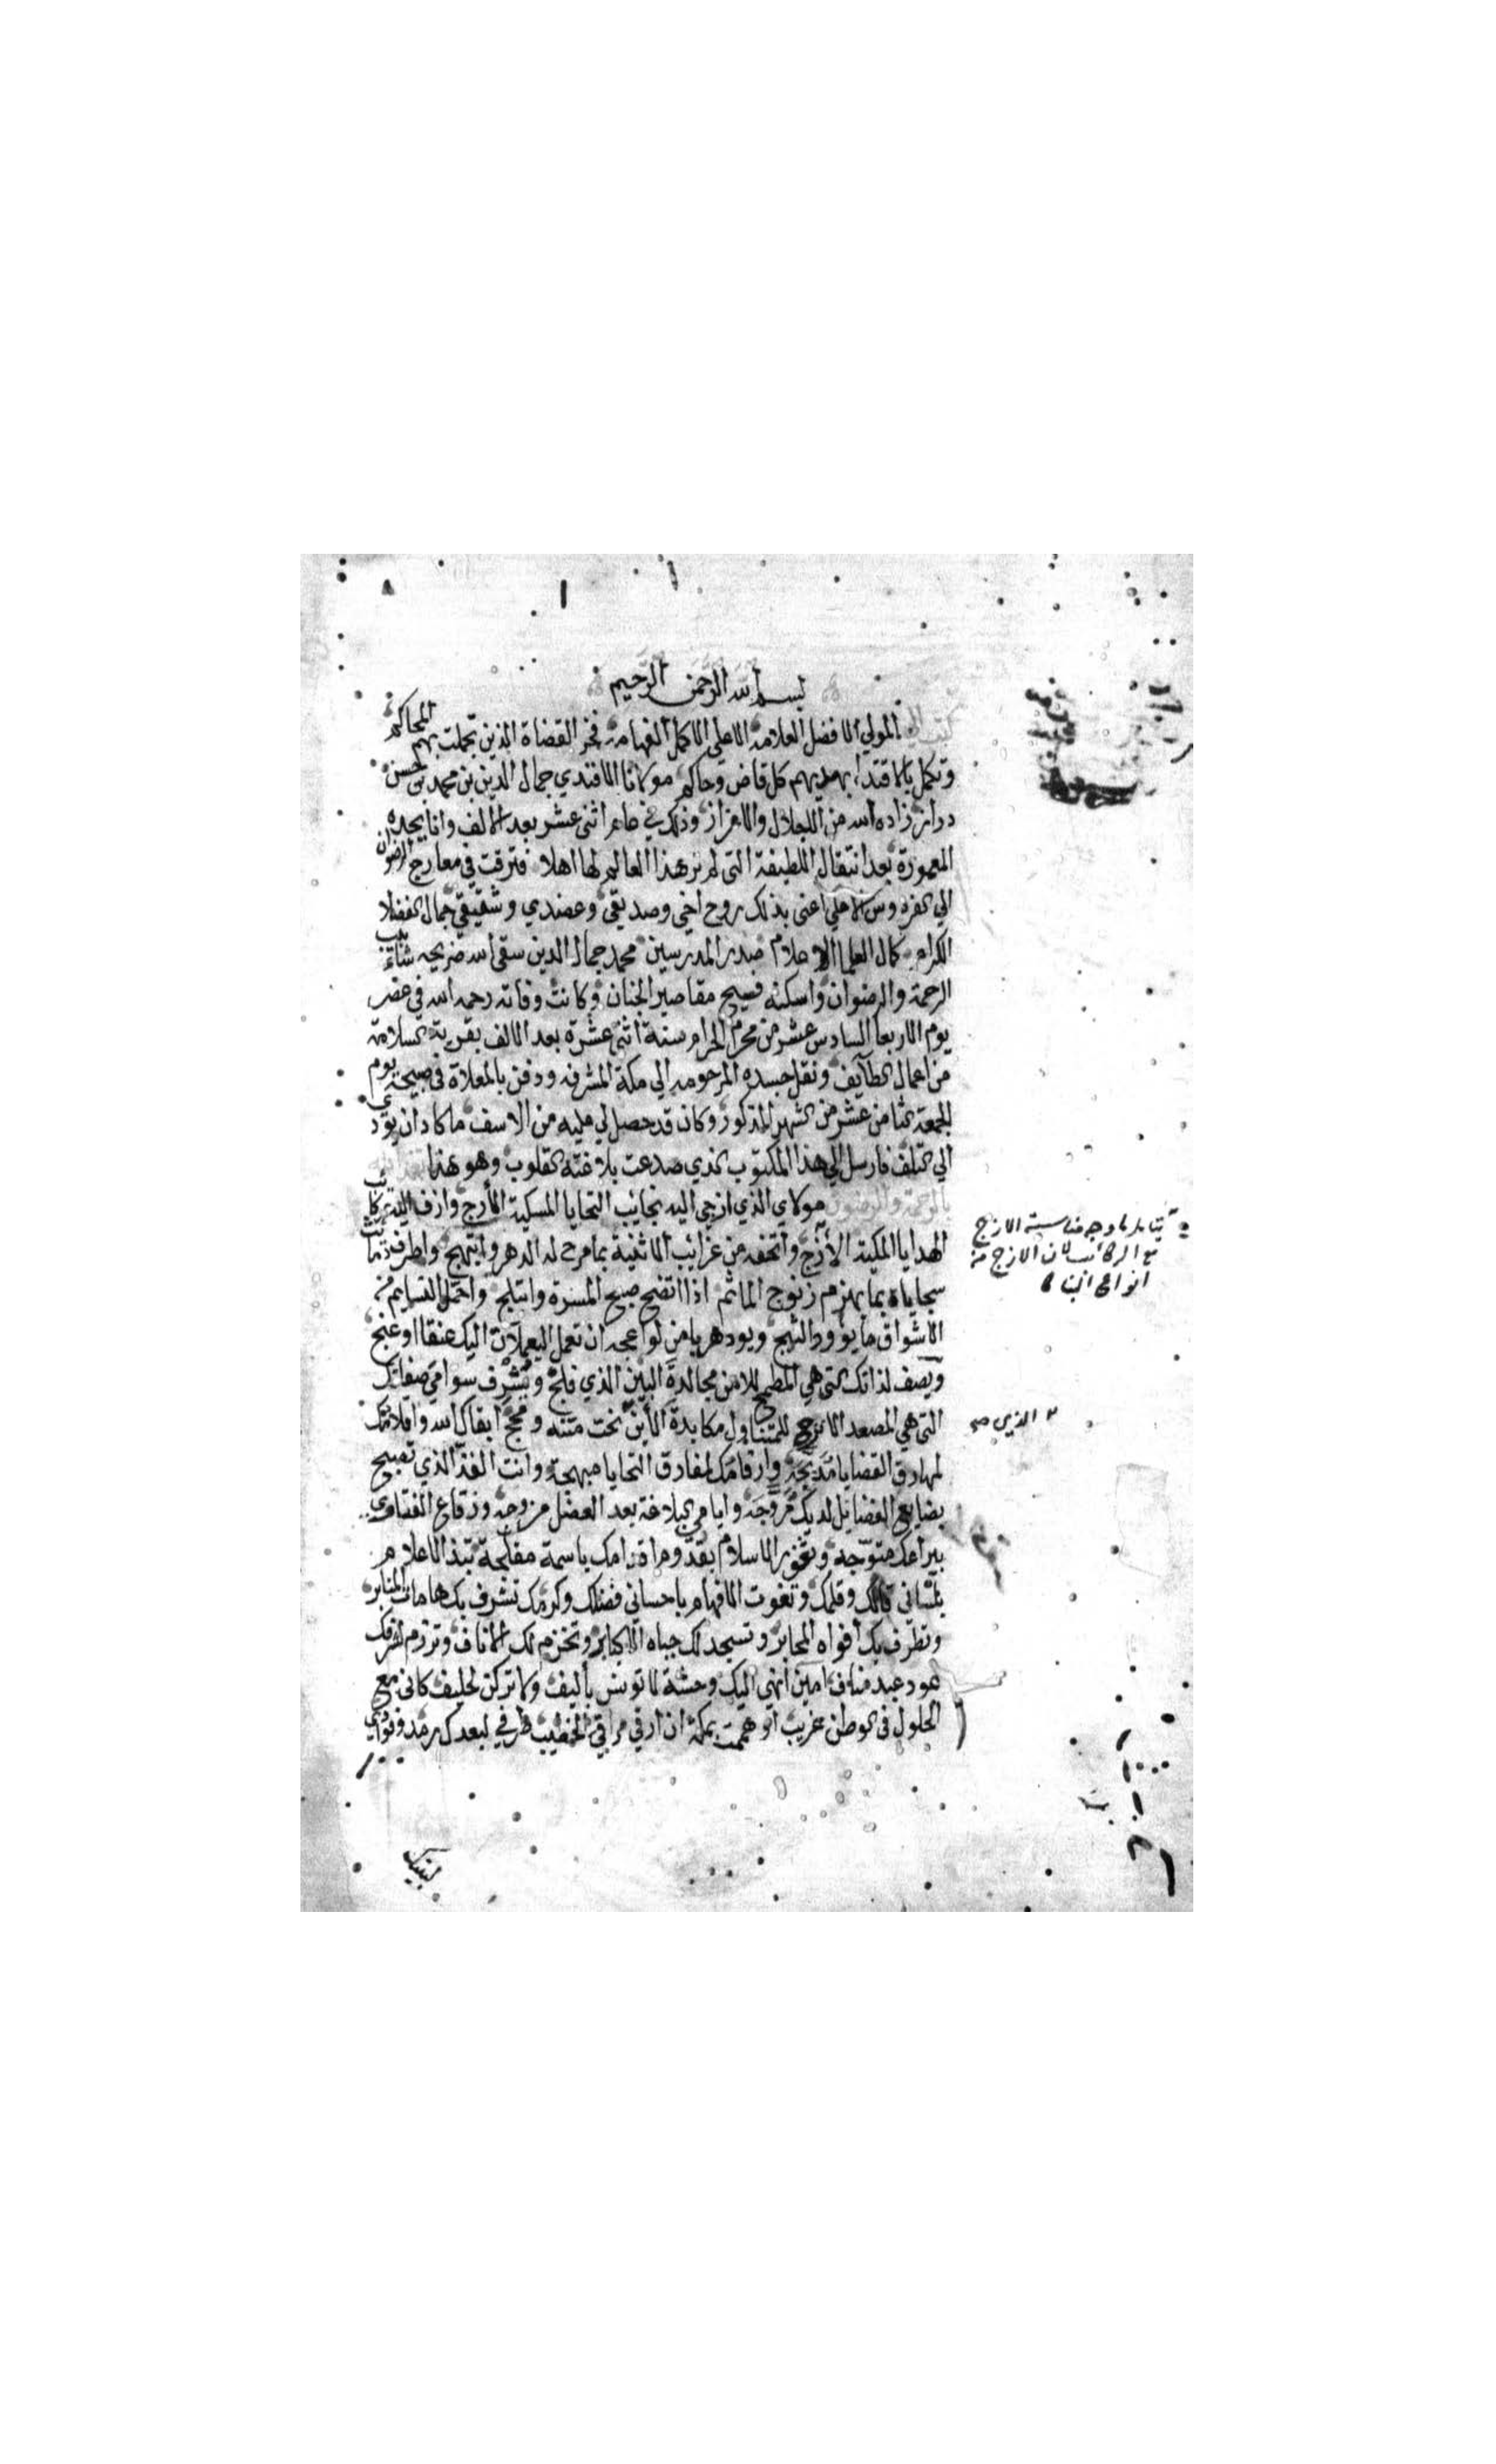 بسم الله الرحمن الرحيم
كتب الي المولي الافضل العلامة الاعلي الاكمل الفهامة فخر القضاة الذين تجملت بهم المحاكم
وتكمل بالاقتداء بهديهم كل قاض وحاكم مولانا الافندي جمال الدين بن محمد بن حسن
دراز زاده الله من الاجلال والاعزاز وذلك في عام اثني عشر بعد الالف وانا بجده
المعمورة بعد انتقال اللطيفة التي لم نر هذا العالم لها اهلا فترقت في معارج الرضوان
الي الفردوس الاعلي اعني بذلك روح اخي وصديقي وعضدي وشقيقي جمال الفضلا
الكرام كمال العلما الاعلام صدر المدرسين محمد جمال الدين سقي الله ضريحه شآبيب
الرحمة والرضوان واسكنه فسيح مقاصير الجنان وكانت وفاته رحمه الله في عصر
يوم الاربعا السادس عشر من محرم الحرام سنة اثني عشرة بعد الالف بقرية السلامة
من اعمال الطآيف ونقل جسده المرحومه الي مكة المشرفه ودفن بالمعلاة في صبيحة يوم
الجمعة الثامن عشر من الشهر المذكور وكان قد حصل لي عليه من الاسف ما كاد ان يودي
الي التلف فارسل الي هذا المكتوب الذي صدعت بلاغته القلوب وهو هذا
بالرحمة والرضوان مولاي الذي ازجي اليه نجايب التحايا المسكية الأرج وازف اليه ركائب
الهدايا المكية الأزج واتحفه من غرائب الاثنية بما مرح له الدهر وابتهج واطرف دمائث
سجاياه بما يهزم زنوج المآثم اذا اتضح صبح المسرة وابتلج واحمل النسايم من
الاشواق ما يوود الثبج ويود هربا من لواعجه ان تعمل اليعملات اليك عنقا او عنج
ويصف لذاتك التي هي المطمح للامن مجالدة البين الذي فلج وتشرف سوامي صفاتك
التي هي المصعد الارجح للمتناول مكابدة الأين نحت متنه ومجج ابقاك الله واقلامك
لمهارق القضايا مدبجة وارقامك لمفارق التحايا مبهجة وانت الفذ الذي تصبح
بضايع الفضايل لديك مروجة وايامي البلاغة بعد العضل مزوجة ورقاع الفتاوي
بيراعك متوجه وثغور الاسلام بقدوم اقدامك باسمة مفلجة تبتذ الاعلام
بلساني قالك وقلمك وتفوت الافهام باحساني فضلك وكرمك تشرف بك هامات المنابر
وتظرف بك افواه المحابر وتسجد لك جباه الاكابر وتخزم لك الاناف وترزم لشرفك
عود عبد مناف امين انهي اليك وحشة لا تونس بأليف ولا تركن لحليف كاني مع
الحلول في الوطن غريب او هممت بمكة ان ارقي مراقي الخطيب طرفي لبعدك رمد وفوادي
لبينك
يتامل ما وجه مناسبة الازج
مع الركائب لان الازج من
انواع البنا
الذي صح